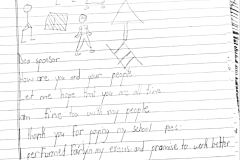 Dear sponsor
How are you and your people
Let me hope that you are all fine
am fine too with my people
thank you for paying my school fees
performed fairly in my exams and promise to work better